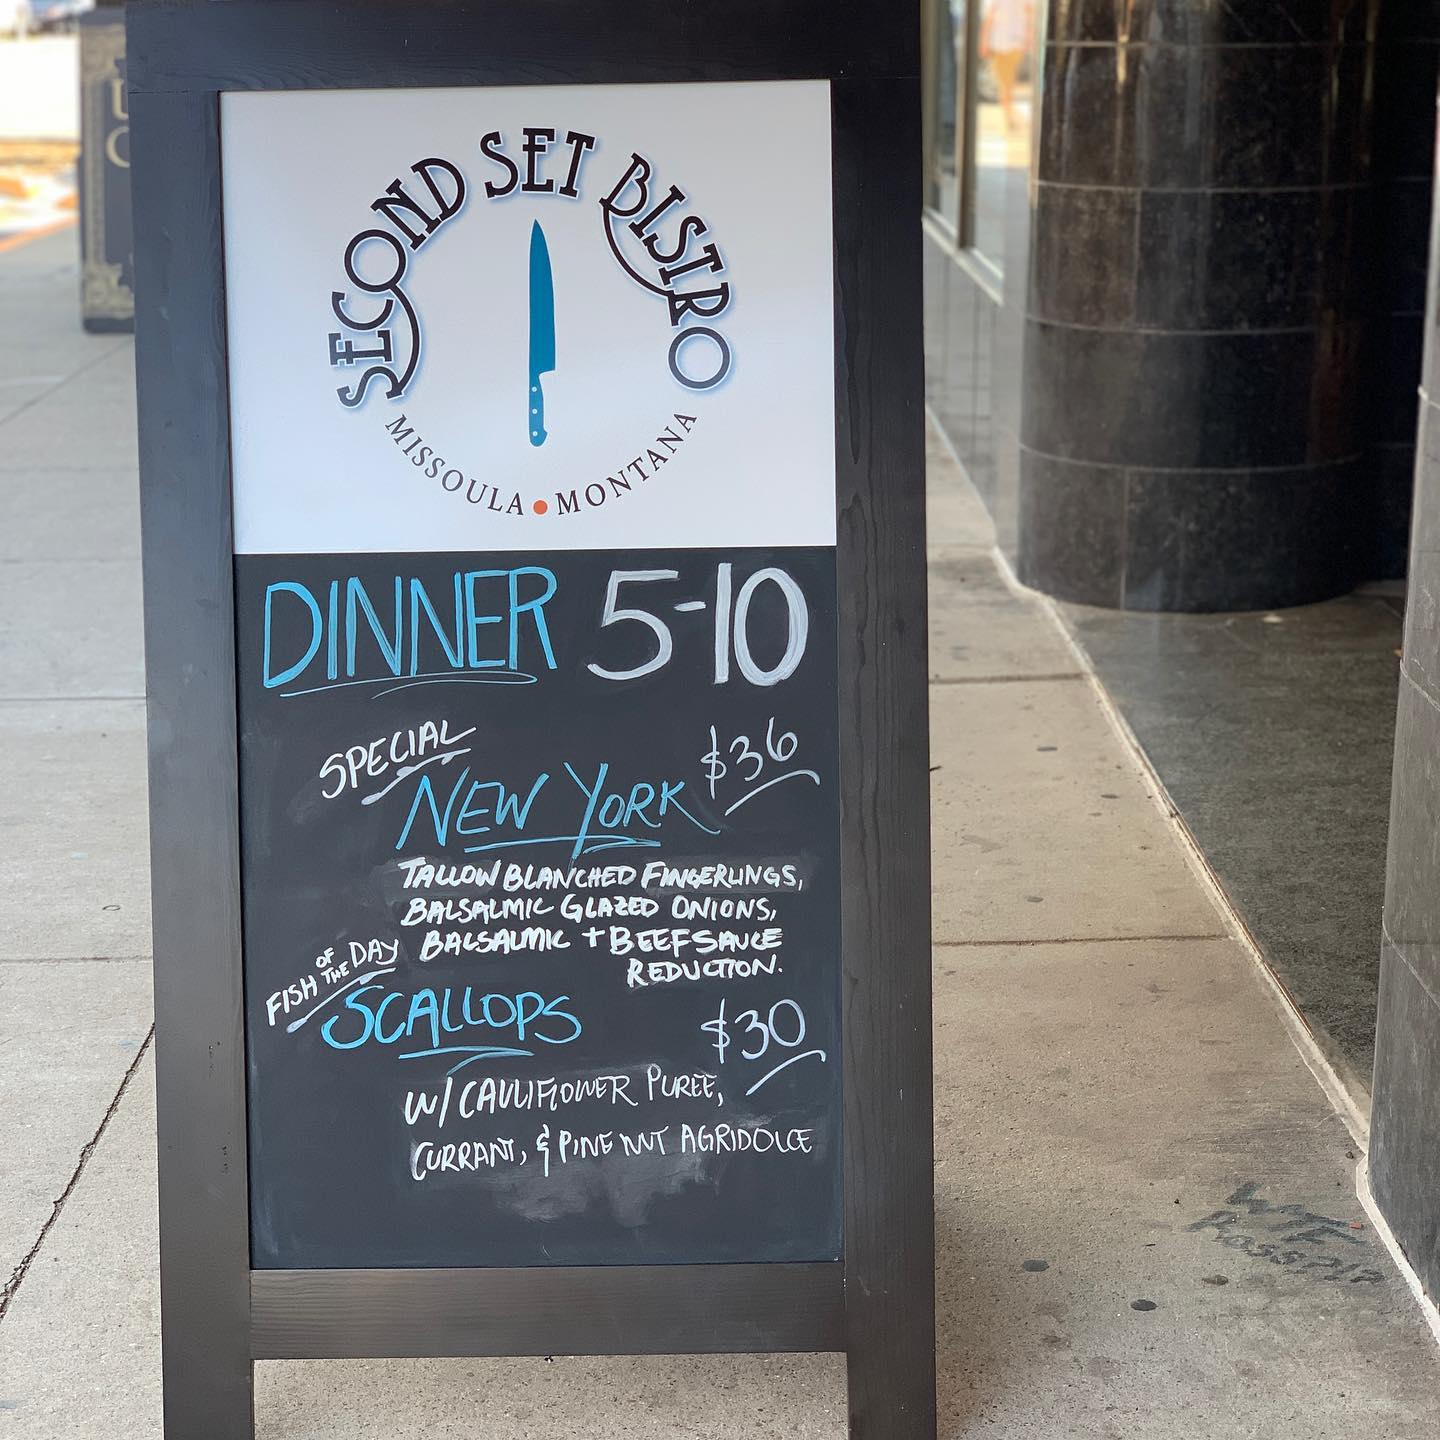 SECOND SET BISTRO
MISSOULA • MONTANA
DINNER 5-10
SPECIAL
NEW YORK $36
TALLOW BLANCHED FINGERLINGS,
BALSALMIC GLAZED ONIONS,
BALSALMIC + BEEF SAUCE
REDUCTION.
FISH OF THE DAY
SCALLOPS $30
W/ CAULIFLOWER PUREE,
CURRANT, & PINE NUT AGRIDOLCE